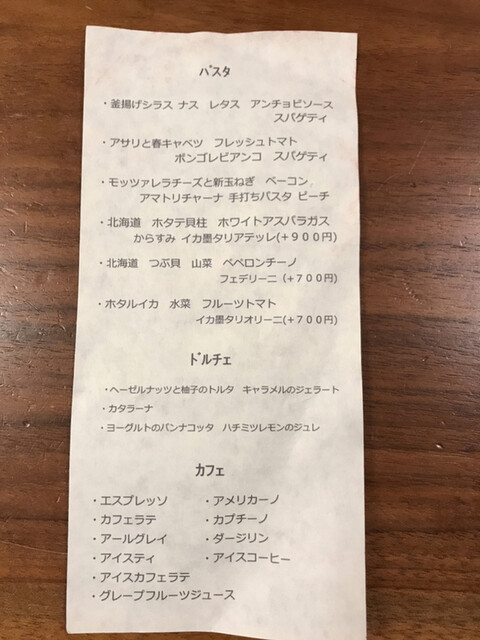 パスタ
・釜揚げシラス ナス レタス アンチョビソース
スパゲティ
・アサリと春キャベツ フレッシュトマト
ボンゴレビアンコ スパゲティ
・モッツァレラチーズと新玉ねぎ ベーコン
アマトリチャーナ 手打ちパスタ ピーチ
・北海道 ホタテ貝柱 ホワイトアスパラガス
からすみ イカ墨タリアテッレ(+900円)
・北海道 つぶ貝 山菜 ペペロンチーノ
フェデリーニ (+700円)
・ホタルイカ 水菜 フルーツトマト
イカ墨タリオリーニ(+700円)
ドルチェ
・ヘーゼルナッツと柚子のトルタ キャラメルのジェラート
・カタラーナ
・ヨーグルトのパンナコッタ ハチミツレモンのジュレ
カフェ
・エスプレッソ ・アメリカーノ
・カフェラテ ・カプチーノ
・アールグレイ ・ダージリン
・アイスティ ・アイスコーヒー
・アイスカフェラテ
・グレープフルーツジュース